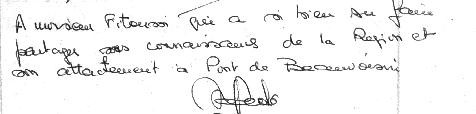 A monsieur Fitoussi qui a si bien su faire
partager ses connaissances de la Région et
son attachement à Pont de Beauvoisin